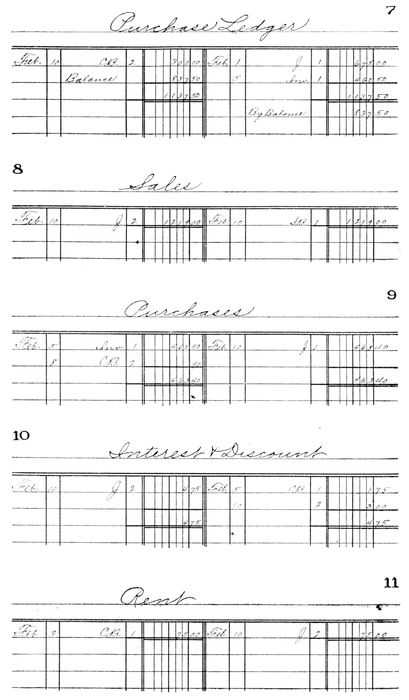 7
Purchase Ledger
Feb. 10 C.B. 2 300 00 Feb. 1 J. 1 675 00
Balance 837 50 5 Inv. 1 462 50
1137 50 1137 50
By Balance 837 50
8
Sales
Feb. 10 J. 2 1219 00 Feb. 10 S.B. 1 1219 00
9
Purchases
Feb. 5 Inv. 1 462 50 Feb. 10 J. 2
8 C.B. 2
10
Interest & Discount
Feb. 10 J. 2 4 75 Feb. 5 C.B. 1 1 75
10 2 3 00
4 75 4 75
11
Rent
Feb. 3 C.B. 1 75 00 Feb. 10 J. 2 75 00